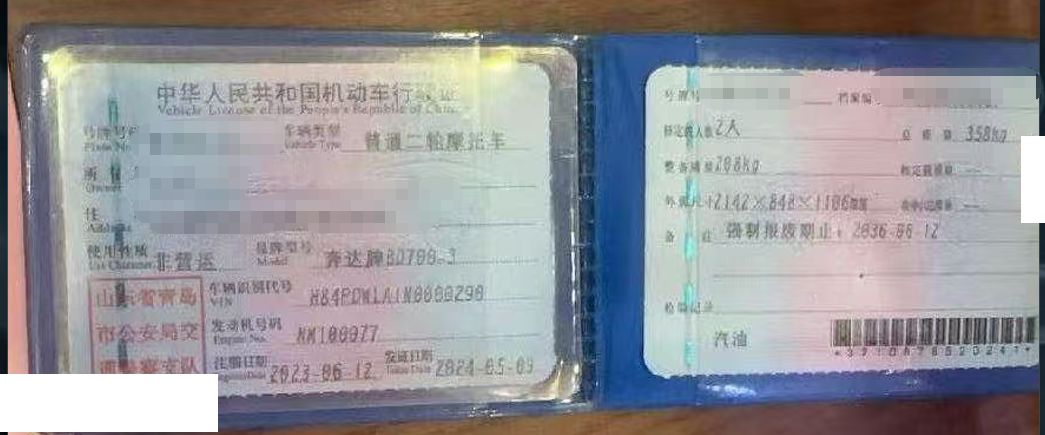 中华人民共和国机动车行驶证
Vehicle License of the People's Republic of China
号牌号码
Plate No.
车辆类型
Vehicle Type
普通二轮摩托车
Owner
住
Address
使用性质
Use Character
非营运
品牌型号
Model
奔达牌BD700-3
山东省青岛
市公安局交
通警察支队
车辆识别代号
VIN
发动机号码
Engine No.
注册日期
2023-06-12
发证日期
Issue Date
2024-05-09
号牌号
档案编
核定载人数 2人
总质量 358kg
整备质量 208kg
核定载质量 --
外廓尺寸 2142×848×1106mm
--
备注 强制报废期止：2036-06-12
检验记录
汽油